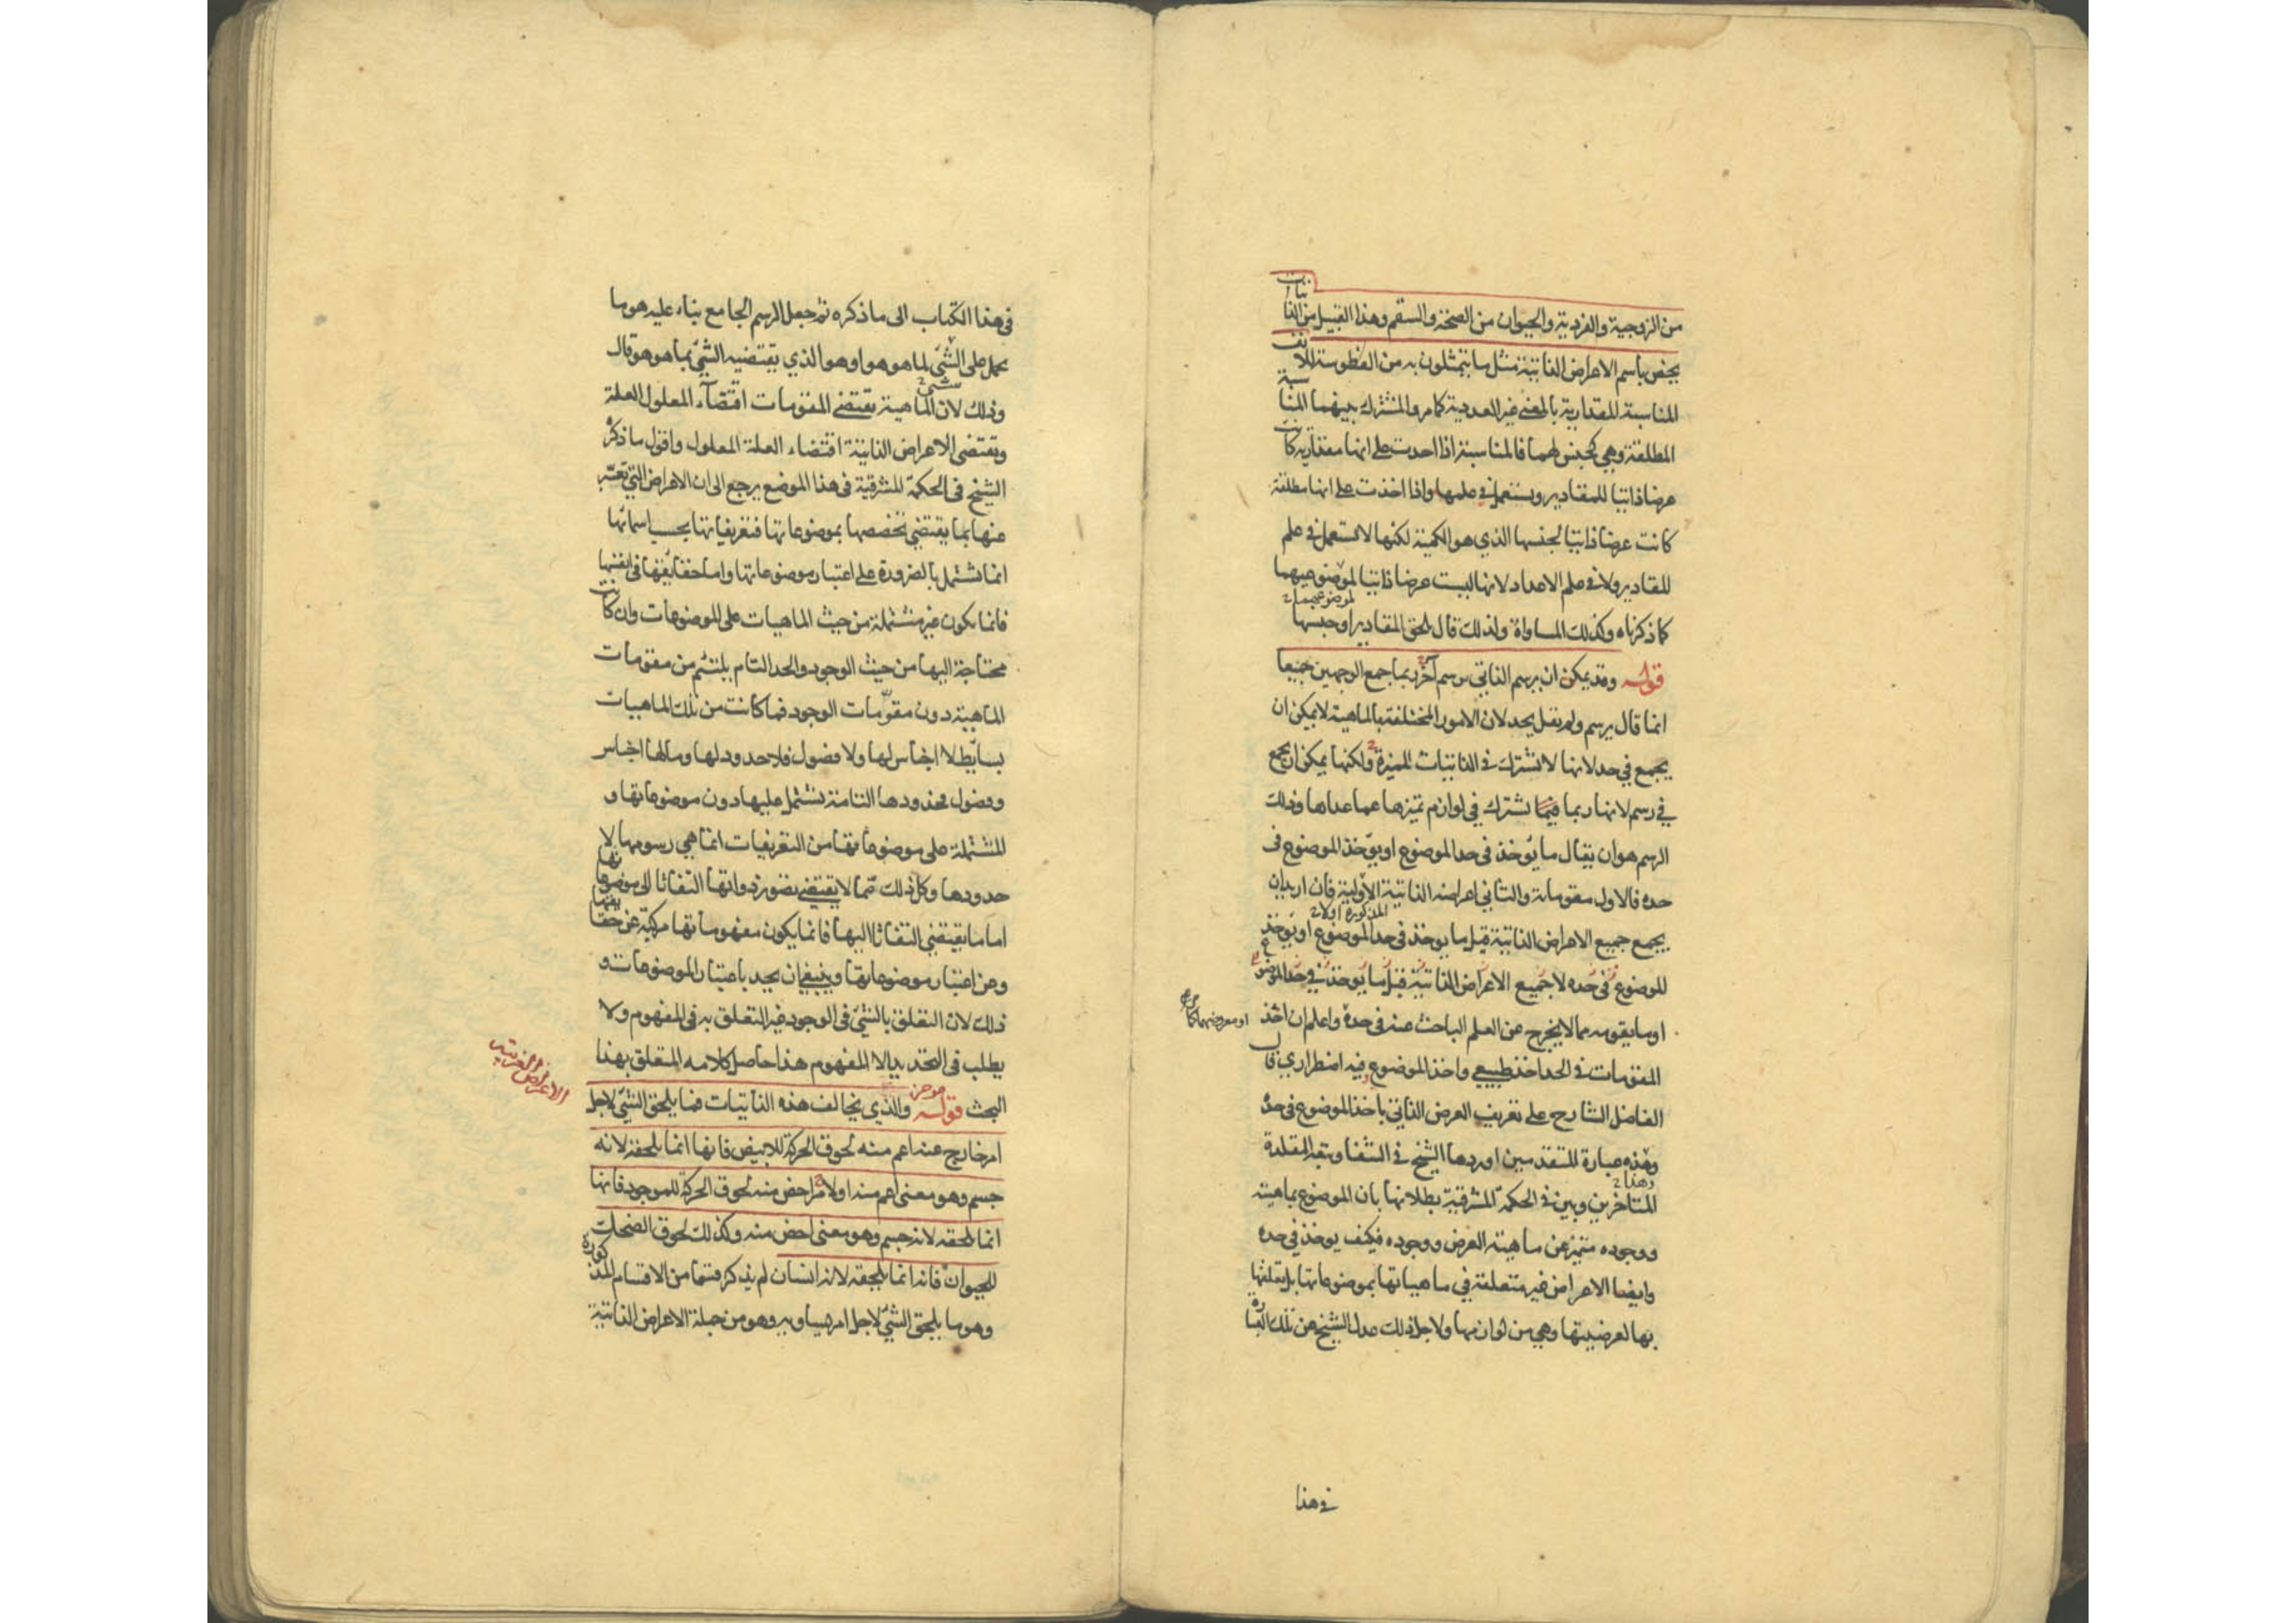 من الزوجية والفردية والحيوان من الصحة والسقم وهذا القبيل من الذاتيات
يخص باسم الاعراض الذاتية مثل ما يتمثلون به من الفطوسة للانف
المناسبة المقدارية بالمعنى غير العددية كما مر والمشترك بينهما المناسبة
المطلقة وهي كجنس لهما فالمناسبة اذا احدت على انها مقدارية كانت
عرضا ذاتيا للمقادير ويستعمل في علمها واذا اخذت على انها مطلقة
كانت عرضا ذاتيا لجنسها الذي هو الكمية لكنها لا تستعمل في علم
المقادير ولا في علم الاعداد لانها ليست عرضا ذاتيا لموضوعيهما
كما ذكرناه وكذلك المساواة ولذلك قال لحق المقادير او جنسها
قوله وقد يمكن ان يرسم الذاتي برسم آخر بما جمع الوجهين جميعا
انما قال يرسم ولم يقل يحد لان الامور المختلفة بالماهية لا يمكن ان
يجمع في حد لانها لا تشترك في الذاتيات المميزة ولكنها يمكن ان يجمع
في رسم لانها ربما تشترك في لوازم تميزها عما عداها وذلك
الرسم هو ان يقال ما يؤخذ في حد الموضوع او يؤخذ الموضوع في
حده فالاول مقوماته والثاني اعراضه الذاتية الاولية فان اريد ان
المذكورة اولا
يجمع جميع الاعراض الذاتية قيل ما يوخذ في حد الموضوع او يوخذ
الموضوع في حده لا جميع الاعراض الذاتية قيل ما يوخذ في حد الموضوع
او ما يقومه مما لا يخرج عن العلم الباحث عنه في حده واعلم ان اخذ
المقومات في الحد اخذ طبيعي واخذ الموضوع فيه اضطراري قال
الفاضل الشارح على تعريف العرض الذاتي باخذ الموضوع في حده
وهذه عبارة المتقدمين اوردها الشيخ في الشفا وتبعه المقلدة
المتاخرين وبين في الحكمة المشرقية بطلانها بان الموضوع بماهيته
ووجوده متميز عن ماهية العرض ووجوده فكيف يوخذ في حده
وايضا الاعراض غير متعلقة في ماهياتها بموضوعاتها بل تعلقها
بها لعرضيتها وهي من لوازمها ولاجل ذلك عدل الشيخ عن تلك العبارة
في هذا
في هذا الكتاب الى ما ذكره ثم جعل الرسم الجامع بناء عليه هو ما
يحمل على الشيء لما هو هو او هو الذي يقتضيه الشيء بما هو هو قال
وذلك لان الماهية تقتضي المقومات اقتضاء المعلول العلة
وتقتضي الاعراض الذاتية اقتضاء العلة المعلول واقول ما ذكره
الشيخ في الحكمة المشرقية في هذا الموضع يرجع الى ان الاعراض التي تعبر
عنها بما يقتضي تخصصها بموضوعاتها فتعريفاتها بحسب اسمائها
انما تشتمل بالضرورة على اعتبار موضوعاتها واما حقايقها في انفسها
فانما يكون غير مشتملة من حيث الماهيات على الموضوعات وان كانت
محتاجة اليها من حيث الوجود والحد التام يلتئم من مقومات
الماهية دون مقومات الوجود فما كانت من تلك الماهيات
بسايط لا اجناس لها ولا فصول فلا حدود لها وما لها اجناس
وفصول فحدودها التامة تشتمل عليها دون موضوعاتها و
المشتملة على موضوعاتها من التعريفات انما هي رسومها لا
حدودها وكل ذلك مما لا يقتضي تصور ذواتها التفاتا الى موضوعاتها
اما ما يقتضي التفاتا اليها فانما يكون مفهوماتها مركبة عن حقايقها
وعن اعتبار موضوعاتها وينبغي ان يحد باعتبار الموضوعات و
ذلك لان التعلق بالشيء في الوجود غير التعلق به في المفهوم ولا
يطلب في التحديد الا المفهوم هذا حاصل كلامه المتعلق بهذا
البحث قوله والذي يخالف هذه الذاتيات فما يلحق الشيء لاجل
الاعراض الغريبة
امر خارج عنه اعم منه لحوق الحركة للابيض فانها انما يلحقه لانه
جسم وهو معنى اعم منه او لامر اخص منه لحوق الحركة للموجود فانها
انما لحقه لانه جسم وهو معنى اخص منه وكذلك لحوق الضحك
للحيوان فانه انما يلحقه لانه انسان لم يذكر قسما من الاقسام المذكورة
وهو ما يلحق الشيء لاجل امر يساويه وهو من جملة الاعراض الذاتية